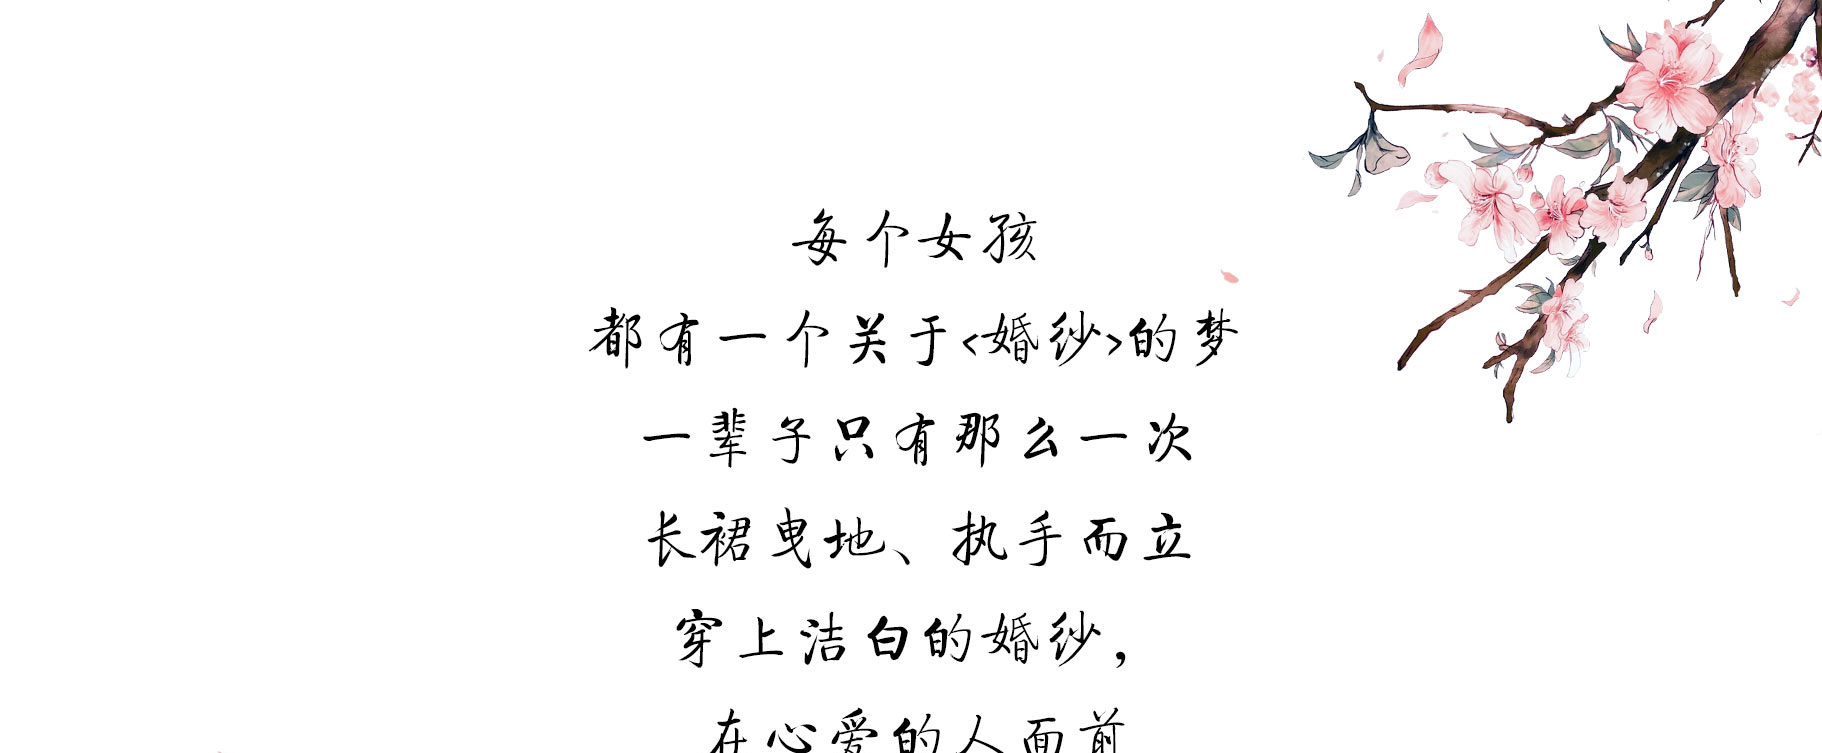 每个女孩
都有一个关于<婚纱>的梦
一辈子只有那么一次
长裙曳地、执手而立
穿上洁白的婚纱，
在心爱的人面前